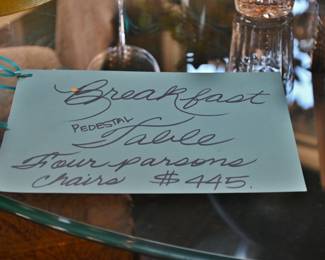 Breakfast
PEDESTAL
Table
Four parsons
chairs $445.